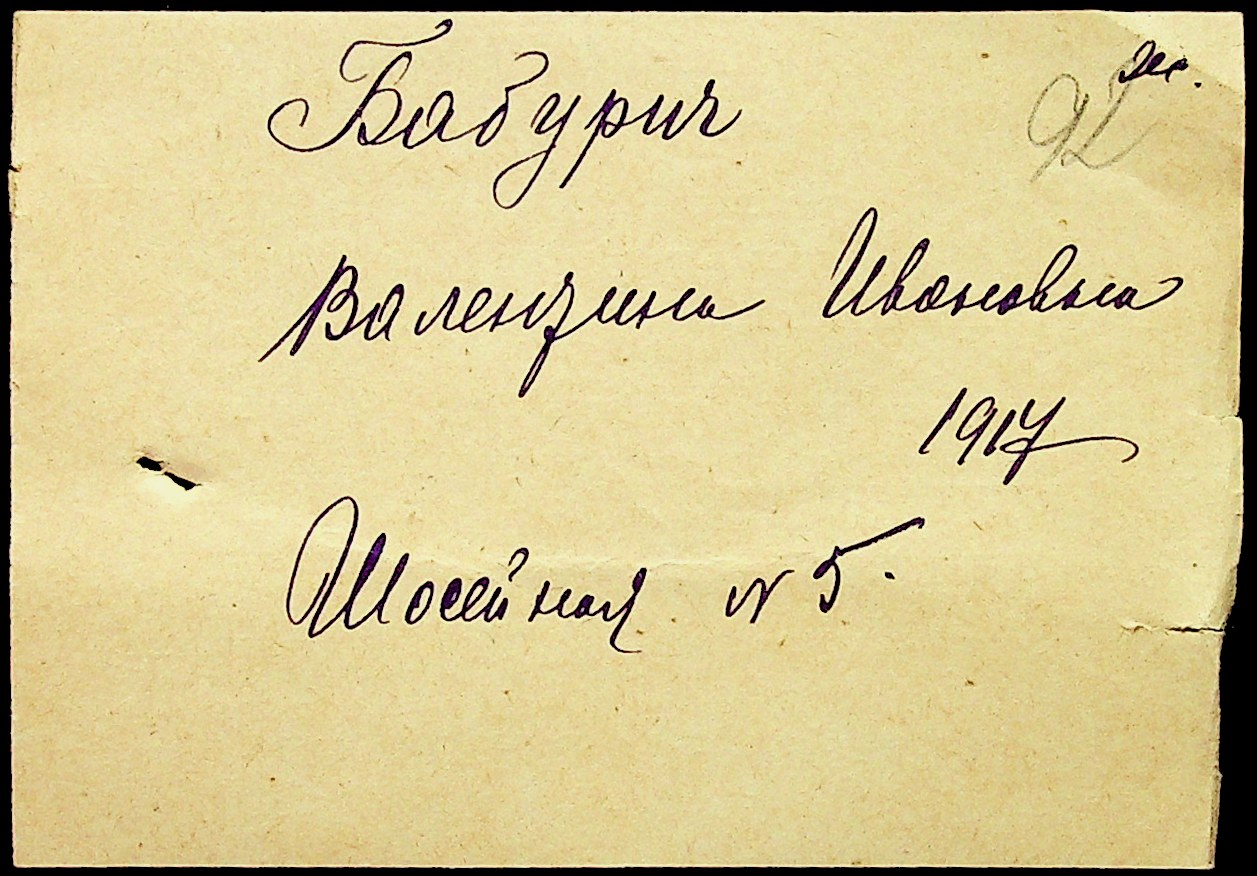 Бабурич
Валентина Ивановна
1917
Шосейная N 5.